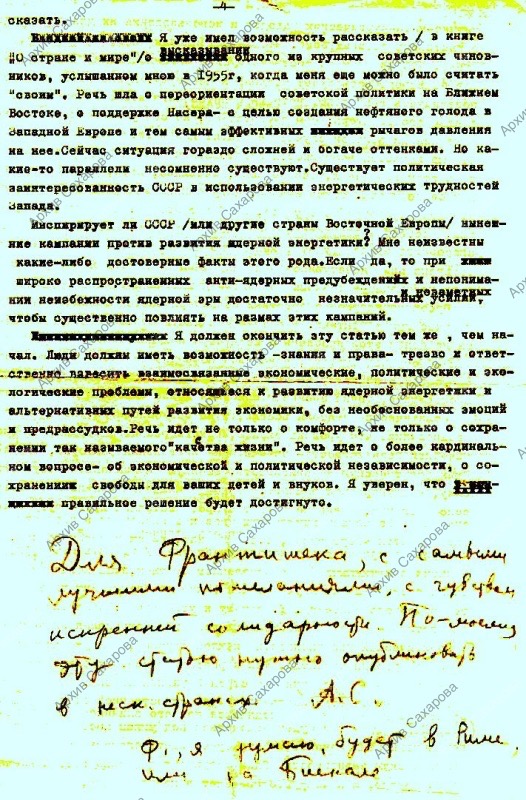 - 4 -
сказать.
Я уже имел возможность рассказать / в книге
"О стране и мире"/о высказывании одного из крупных советских чинов-
ников, услышанном мною в 1955г, когда меня еще можно было считать
"своим". Речь шла о переориентации советской политики на Ближнем
Востоке, о поддержке Насера- с целью создания нефтяного голода в
Западной Европе и тем самым эффективных рычагов давления
на нее.Сейчас ситуация гораздо сложней и богаче оттенками. Но ка-
кие-то параллели несомненно существуют.Существует политическая
заинтересованность СССР в использовании энергетических трудностей
Запада.
Инспирирует ли СССР /или другие страны Восточной Европы/ нынеш-
ние кампании против развития ядерной энергетики? Мне неизвестны
какие-либо достоверные факты этого рода.Если да, то при
широко распространенных анти-ядерных предубеждениях и непонима-
нии неизбежности ядерной эры достаточно незначительных и незаметных усилий,
чтобы существенно повлиять на размах этих кампаний.
Я должен окончить эту статью тем же , чем на-
чал. Люди должны иметь возможность -знания и права- трезво и ответ-
ственно взвесить взаимосвязанные экономические, политические и эко-
логические проблемы, относящиеся к развитию ядерной энергетики и
альтернативных путей развития экономики, без необоснованных эмоций
и предрассудков.Речь идет не только о комфорте, не только о сохра-
нении так называемого"качества жизни". Речь идет о более кардиналь-
ном вопросе- об экономической и политической независимости, о со-
хранении свободы для ваших детей и внуков. Я уверен, что
правильное решение будет достигнуто.
Для Франтишека, с самыми
лучшими пожеланиями, с чувством
искренней солидарности. По-моему
эту статью нужно опубликовать
в неск. странах. А.С.
Ф., я думаю, будет в Риме
или на Биенале
Архив Сахарова